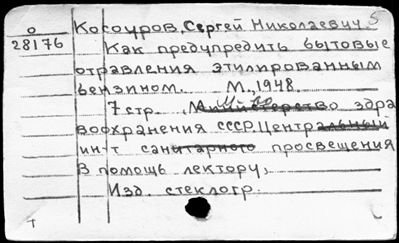 о Косоуров, Сергей Николаевич 5
28176 Как предупредить бытовые
отравления этилированным
бензином. М., 1948.
7 стр. Министерство здра
воохранения СССР, Центральный
ин-т санитарного просвещения
В помощь лектору,
Изд. стеклогр.
т